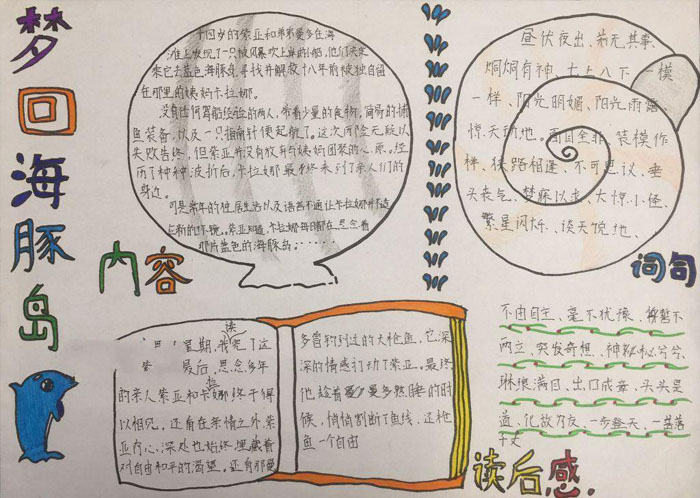 梦回海豚岛
十四岁的索亚和弟弟曼多在海
滩上发现了一只被风暴吹上岸的小船，他们决定
乘它去蓝色海豚岛寻找并解放十八年前被独自留
在那里的姨妈卡拉娜。
没有任何驾船经验的两人，带着少量的食物，简易的捕
鱼装备，以及一只指南针便起航了。这次
失败告终，但索亚并没有放弃与姨妈团聚的心原，经
历了种种波折后，卡拉娜最终来到了亲人们的
身边。
可是常年的独居生活以及语言不通让卡拉娜
在新的环境。索亚知道，卡拉娜每日都在思念着
那片蓝色的海豚岛……
内容
昼伏夜出、若无其事、
炯炯有神、七上八下、一模
一样、阳光明媚、阳光雨露、
惊天动地、面目全非、装模作
样、狭路相逢、不可思议、垂
头丧气、梦寐以求、大惊小怪、
繁星闪烁、谈天说地、
词句
不由自主、毫不犹豫、势不
两立、突发奇想、神秘兮兮、
琳琅满目、出口成章、头头是
道、化敌为友、一步登天、一落
千丈
读
星期，我把了这
最后，思念多年
的亲人索亚和卡娜终于得
以相见。还有在亲情之外，索
亚内心深处也始终埋藏着
对自由和平的渴望。还有那爱
多曾钓到过的大枪鱼，它深
深的情感打动了索亚。最终
他趁着曼多熟睡的时
候，悄悄割断了鱼线，还枪
鱼一个自由
读后感